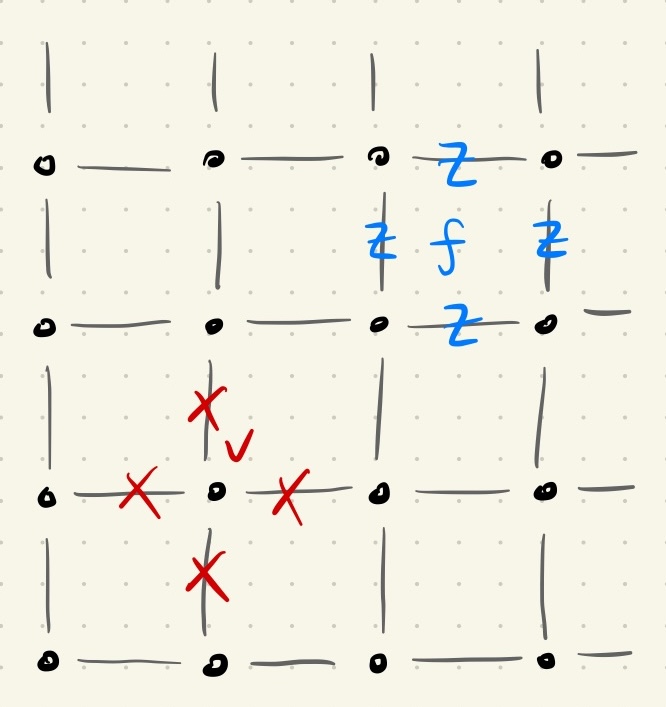 Z
Z f Z
Z
X
v
X X
X